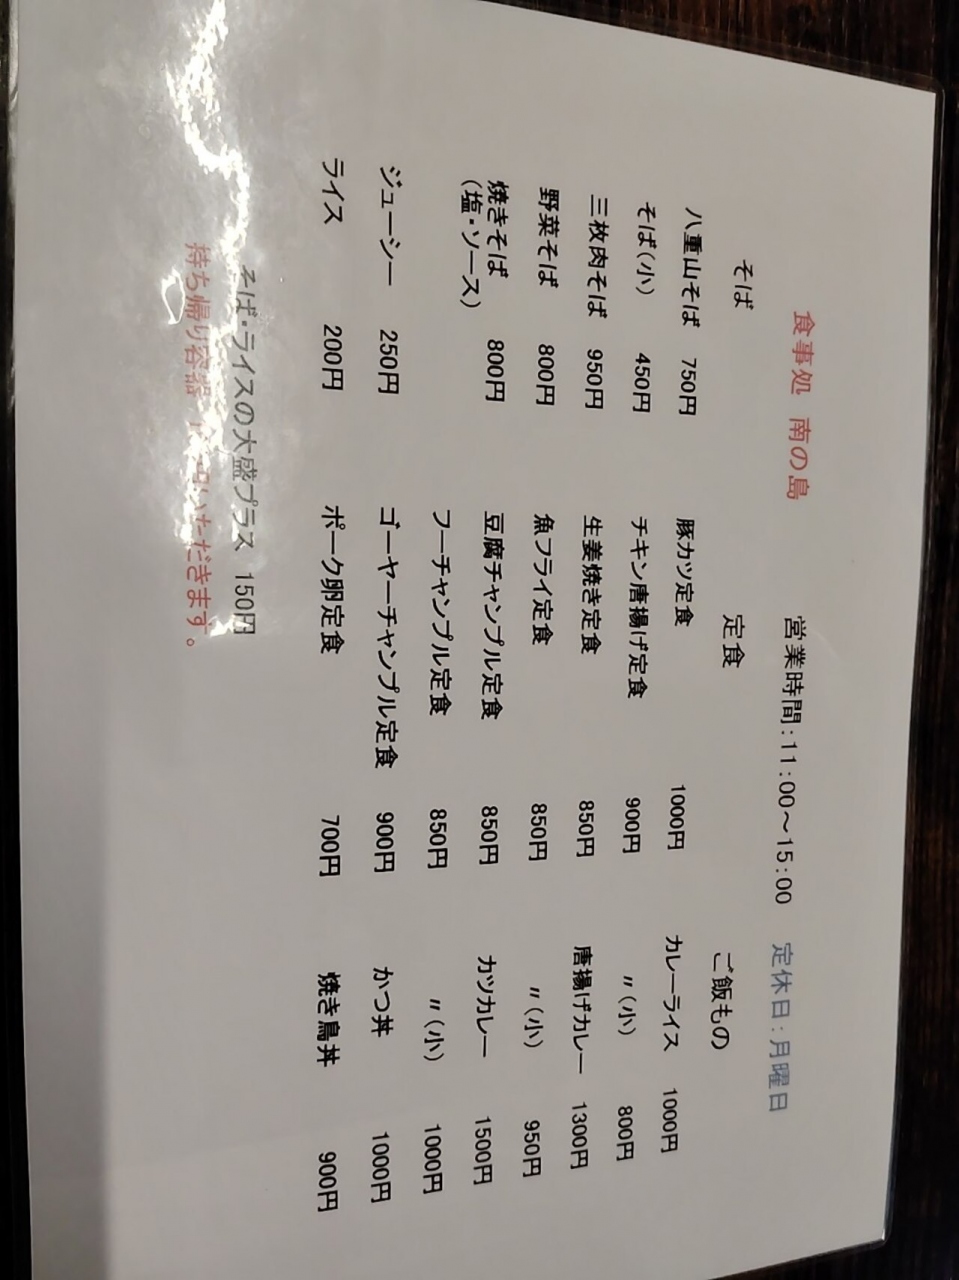 食事処 南の島 営業時間:11:00～15:00 定休日:月曜日
そば 定食 ご飯もの
八重山そば 750円 豚カツ定食 1000円 カレーライス 1000円
そば(小) 450円 チキン唐揚げ定食 900円 〃(小) 800円
三枚肉そば 950円 生姜焼き定食 850円 唐揚げカレー 1300円
野菜そば 800円 魚フライ定食 850円 〃(小) 950円
焼きそば 800円 豆腐チャンプル定食 850円 カツカレー 1500円
(塩・ソース) フーチャンプル定食 850円 〃(小) 1000円
ジューシー 250円 ゴーヤーチャンプル定食 900円 かつ丼 1000円
ライス 200円 ポーク卵定食 700円 焼き鳥丼 900円
そば・ライスの大盛プラス 150円
持ち帰り容器 いただきます。